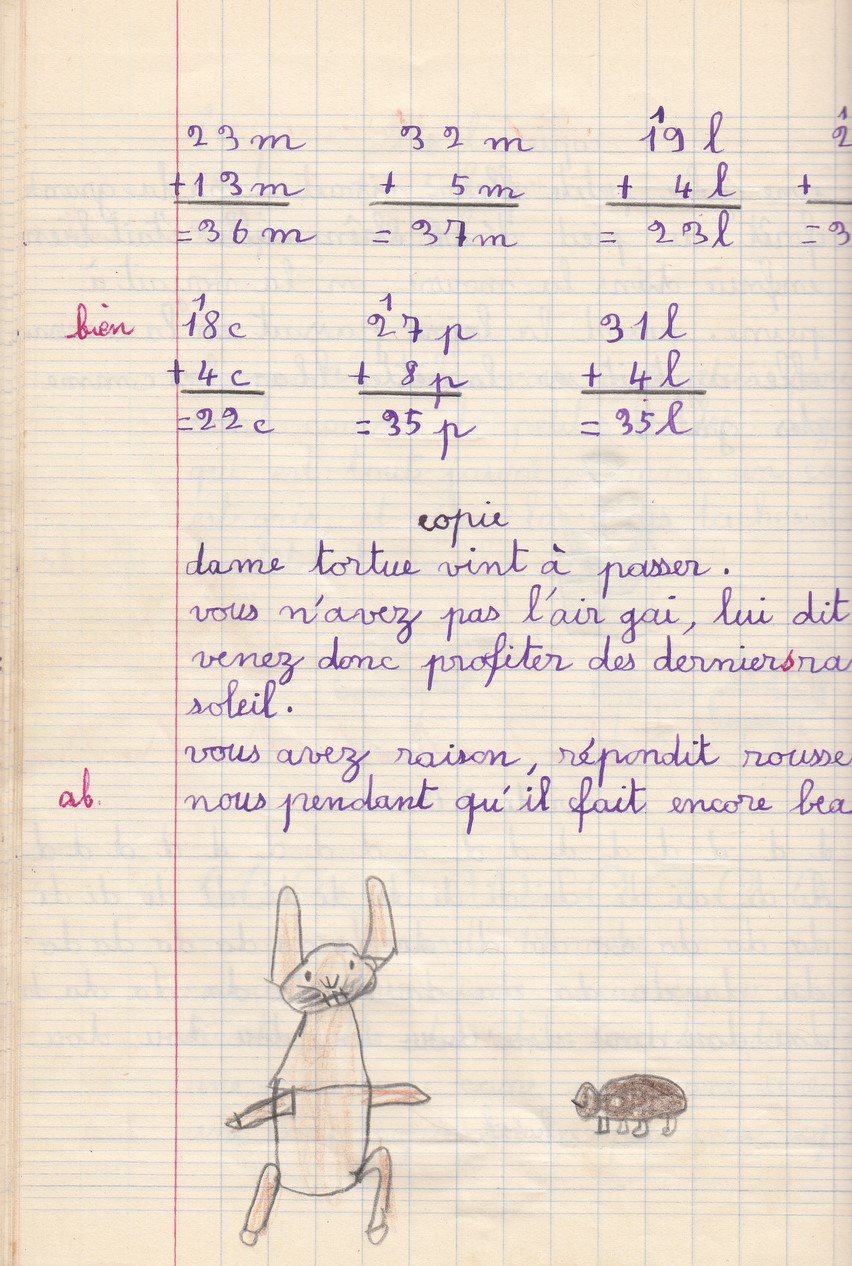 23m 32m 19l 2
+13m + 5m + 4l +
=36m = 37m = 23l =3
bien 18c 27p 31l
+4c + 8p + 4l
=22c =35p = 35l
copie
dame tortue vint à passer.
vous n'avez pas l'air gai, lui dit
venez donc profiter des derniers ra
soleil.
vous avez raison, répondit rousse
ab. nous pendant qu'il fait encore bea